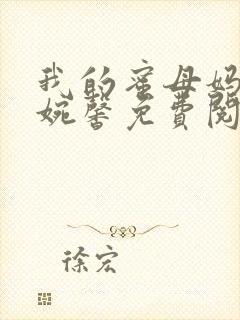 我的蜜母妈
婉馨免费阅
徐宏